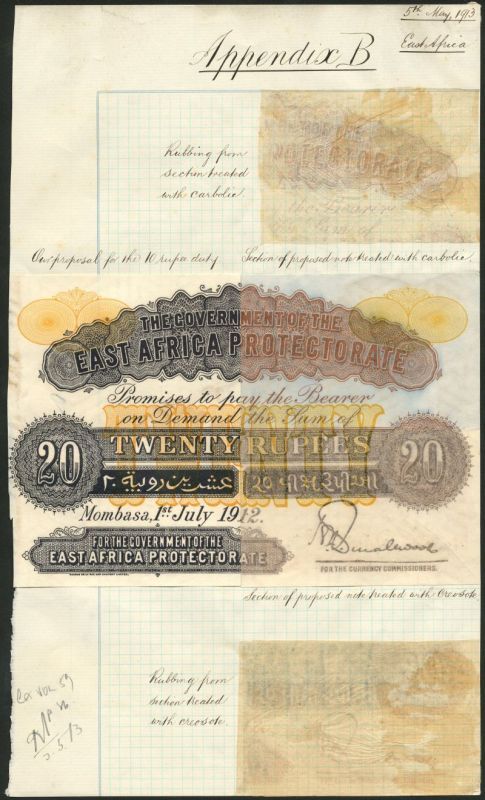 5th May, 1913
Appendix B
East Africa
Rubbing from
section treated
with carbolic.
PROTECTORATE
the Bearer
Our proposal for the 10 rupee duty
Section of proposed note treated with carbolic.
THE GOVERNMENT OF THE
EAST AFRICA PROTECTORATE
Promises to pay the Bearer
on Demand the Sum of
TWENTY RUPEES
20
20
٢٠ عشرين روبية
૨૦ વીસ રૂપીઆ
Mombasa, 1st July 1912.
FOR THE GOVERNMENT OF THE
EAST AFRICA PROTECTORATE
FOR THE CURRENCY COMMISSIONERS.
Section of proposed note treated with Creosote
Rubbing from
section treated
with creosote.